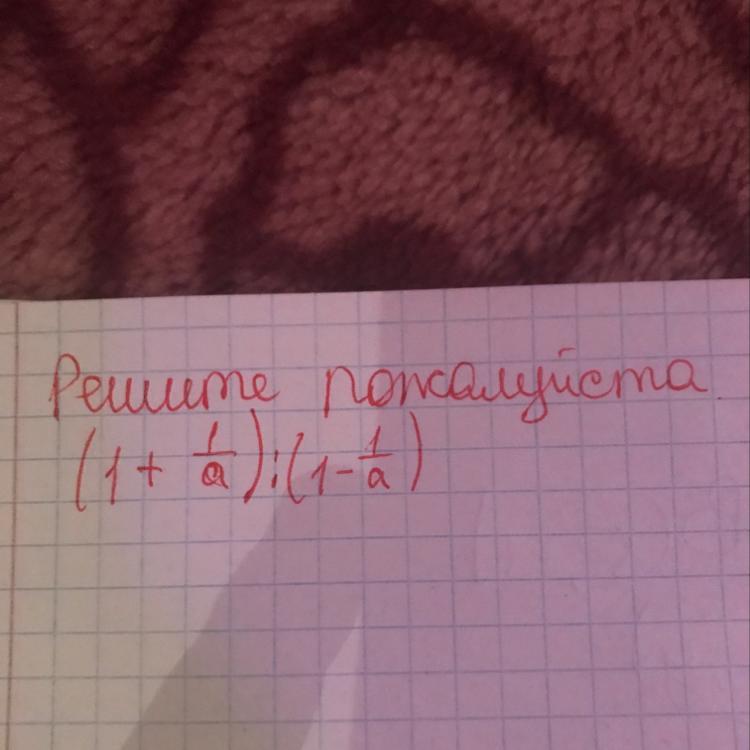 Решите пожалуйста
(1 + 1/a) : (1 - 1/a)